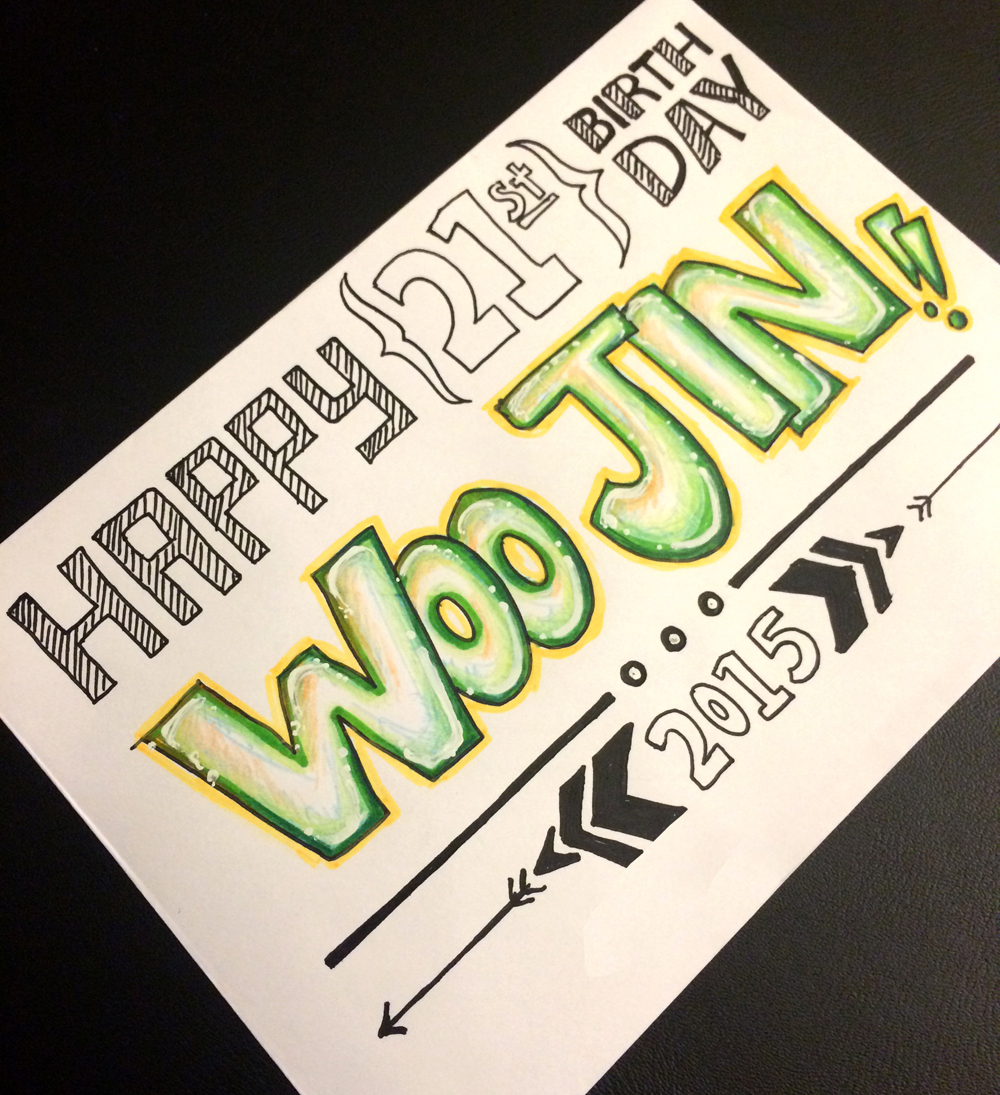 HAPPY {21st} BIRTH DAY
WOO JIN!!
2015